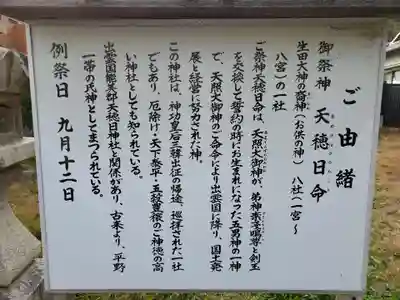 ご由緒
御祭神　天穂日命
生田大神の裔神（お供の神）　八社（一宮～
八宮）の一社
ご祭神天穂日命は、天照大御神が、弟神素戔嗚尊と剣玉
を交換して誓約の時にお生まれになった五男神の一神
で、天照大御神のご命令により出雲国に降り、国土発
展と経営に努力された神。
この神社は、神功皇后三韓出征の帰途、巡拝された一社
でもあり、厄除け・天下泰平・五穀豊穣のご神徳の高
い神社としても知られている。
出雲国能美郡天穂日神社と関係があり、古来より、平野
一帯の氏神としてまつられている。
例祭日　九月十二日